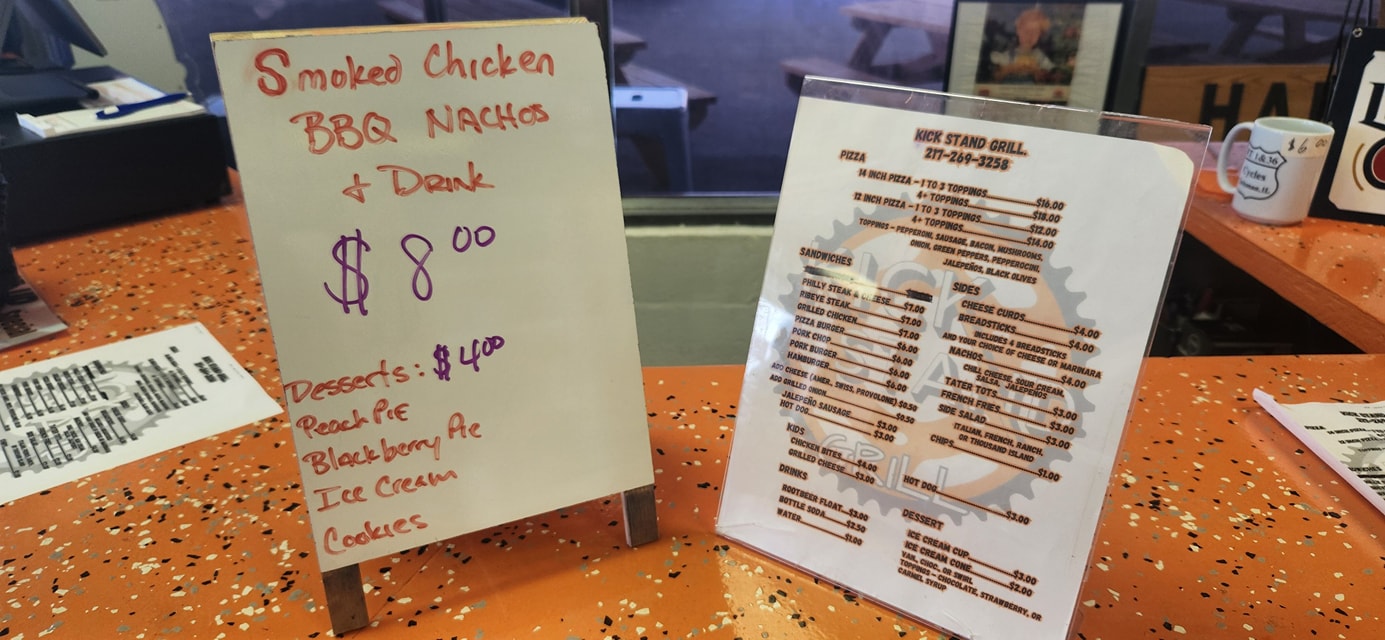 Smoked Chicken
BBQ NACHOS
+ DRINK
$8.00
Desserts: $4.00
Peach PIE
Blackberry Pie
Ice Cream
Cookies
KICK STAND GRILL
217-269-3258
PIZZA
14 INCH PIZZA - 1 TO 3 TOPPINGS $16.00
4+ TOPPINGS $18.00
12 INCH PIZZA - 1 TO 3 TOPPINGS $12.00
4+ TOPPINGS $14.00
TOPPINGS - PEPPERONI, SAUSAGE, BACON, MUSHROOMS,
ONION, GREEN PEPPERS, PEPPEROCINI,
JALEPEÑOS, BLACK OLIVES
SANDWICHES
PHILLY STEAK & CHEESE $7.00
RIBEYE STEAK $7.00
GRILLED CHICKEN $7.00
PIZZA BURGER $6.00
PORK CHOP $6.00
PORK BURGER $6.00
HAMBURGER
ADD CHEESE (AMER, SWISS, PROVOLONE) $0.50
ADD GRILLED ONION $0.50
JALEPEÑO SAUSAGE $3.00
HOT DOG $3.00
KIDS
CHICKEN BITES $4.00
GRILLED CHEESE $3.00
DRINKS
ROOTBEER FLOAT $3.00
BOTTLE SODA $2.50
WATER $1.00
SIDES
CHEESE CURDS $4.00
BREADSTICKS $4.00
INCLUDES 4 BREADSTICKS
AND YOUR CHOICE OF CHEESE OR MARINARA
NACHOS $4.00
CHILI, CHEESE, SOUR CREAM,
SALSA, JALEPENOS
TATER TOTS $3.00
FRENCH FRIES $3.00
SIDE SALAD $3.00
ITALIAN, FRENCH, RANCH,
OR THOUSAND ISLAND
CHIPS $1.00
HOT DOG $3.00
DESSERT
ICE CREAM CUP $3.00
ICE CREAM CONE $2.00
VAN., CHOC., OR SWIRL
TOPPINGS - CHOCOLATE, STRAWBERRY, OR
CARMEL SYRUP
KICK
STAND
GRILL
HA
$6.00
1 & 36
Cycles
KICK STAND
PIZZA